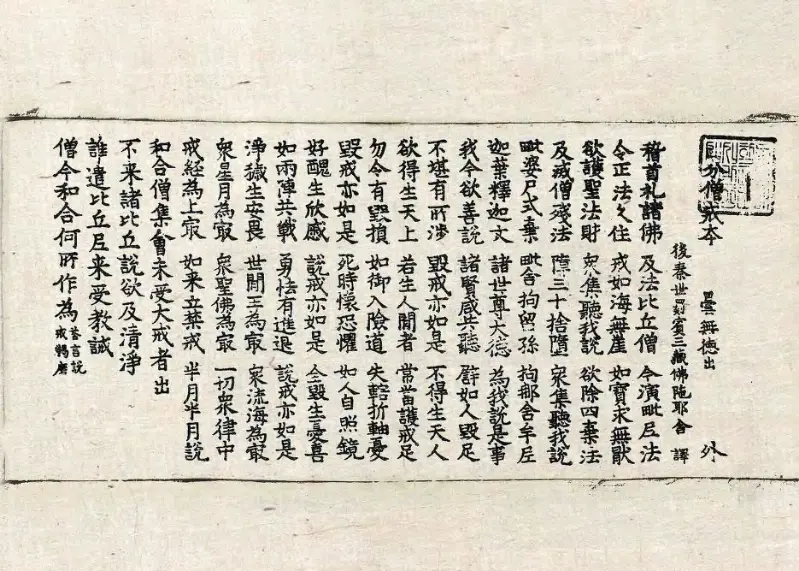 分僧戒本 曇無德出 外
後秦世罽賓三藏佛陁耶舍譯
稽首礼諸佛 及法比丘僧 今演毗尼法
令正法久住 戒如海無崖 如寶求無猒
欲護聖法財 衆集聽我說 欲除四棄法
及滅僧殘法 障三十捨墮 衆集聽我說
毗婆尸式棄 毗舍拘留孫 拘那舍牟尼
迦葉釋迦文 諸世尊大德 為我說是事
我今欲善說 諸賢咸共聽 譬如人毀足
不堪有所涉 毀戒亦如是 不得生天人
欲得生天上 若生人間者 常當護戒足
勿令有毀損 如御入險道 失轄折軸憂
毀戒亦如是 死時懷恐懼 如人自照鏡
好醜生欣慼 說戒亦如是 全毀生憂喜
如兩陣共戰 勇怯有進退 說戒亦如是
淨穢生安畏 世間王為㝡 衆流海為㝡
衆星月為㝡 衆聖佛為㝡 一切衆律中
戒經為上㝡 如来立禁戒 半月半月說
和合僧集會未受大戒者出
不来諸比丘說欲及清淨
誰遣比丘尼来受教誡
僧今和合何所作為 答言說戒羯磨